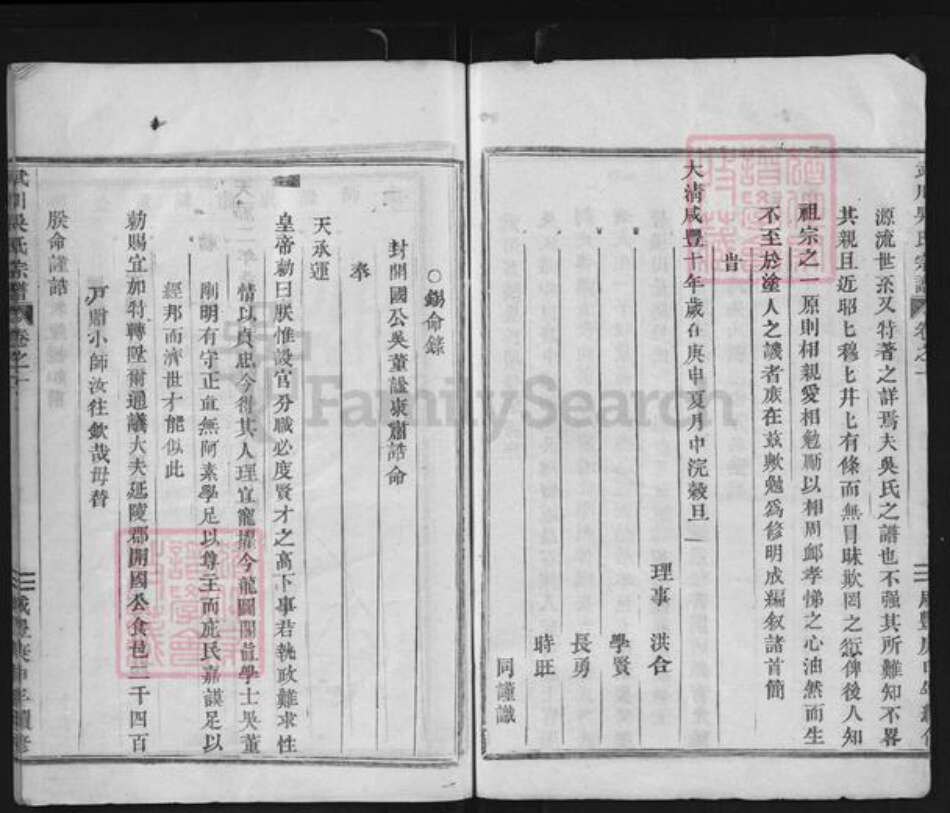 源流世系又特著之詳焉夫吳氏之譜也不强其所難知不畧
其親且近昭匕穆匕井匕有條而無目昧欺罔之術俾後人知
祖宗之一原則相親愛相勉勵以相周卹孝悌之心油然而生
不至於塗人之譏者庶在茲歟勉爲修明成編叙諸首簡
旹
大清咸豐十年歲在庚申夏月中浣穀旦
理事 洪合
學賢
長勇
時旺
同謹識
○錫命錄
封開國公吳董諡康肅誥命
奉
天承運
皇帝勅曰朕惟設官分職必度賢才之高下事若執政難求性
情以貞忠今得其人理宜寵擢今龍圖閣直學士吳董
剛明有守正直無阿素學足以尊王而庇民嘉謨足以
經邦而濟世才能似此
勅賜宜加特轉陞爾通議大夫延陵郡開國公食邑二千四百
戸贈小師汝往欽哉毋替
朕命謹誥
武川吳氏宗譜 卷之一
咸豐庚申年續修
FamilySearch